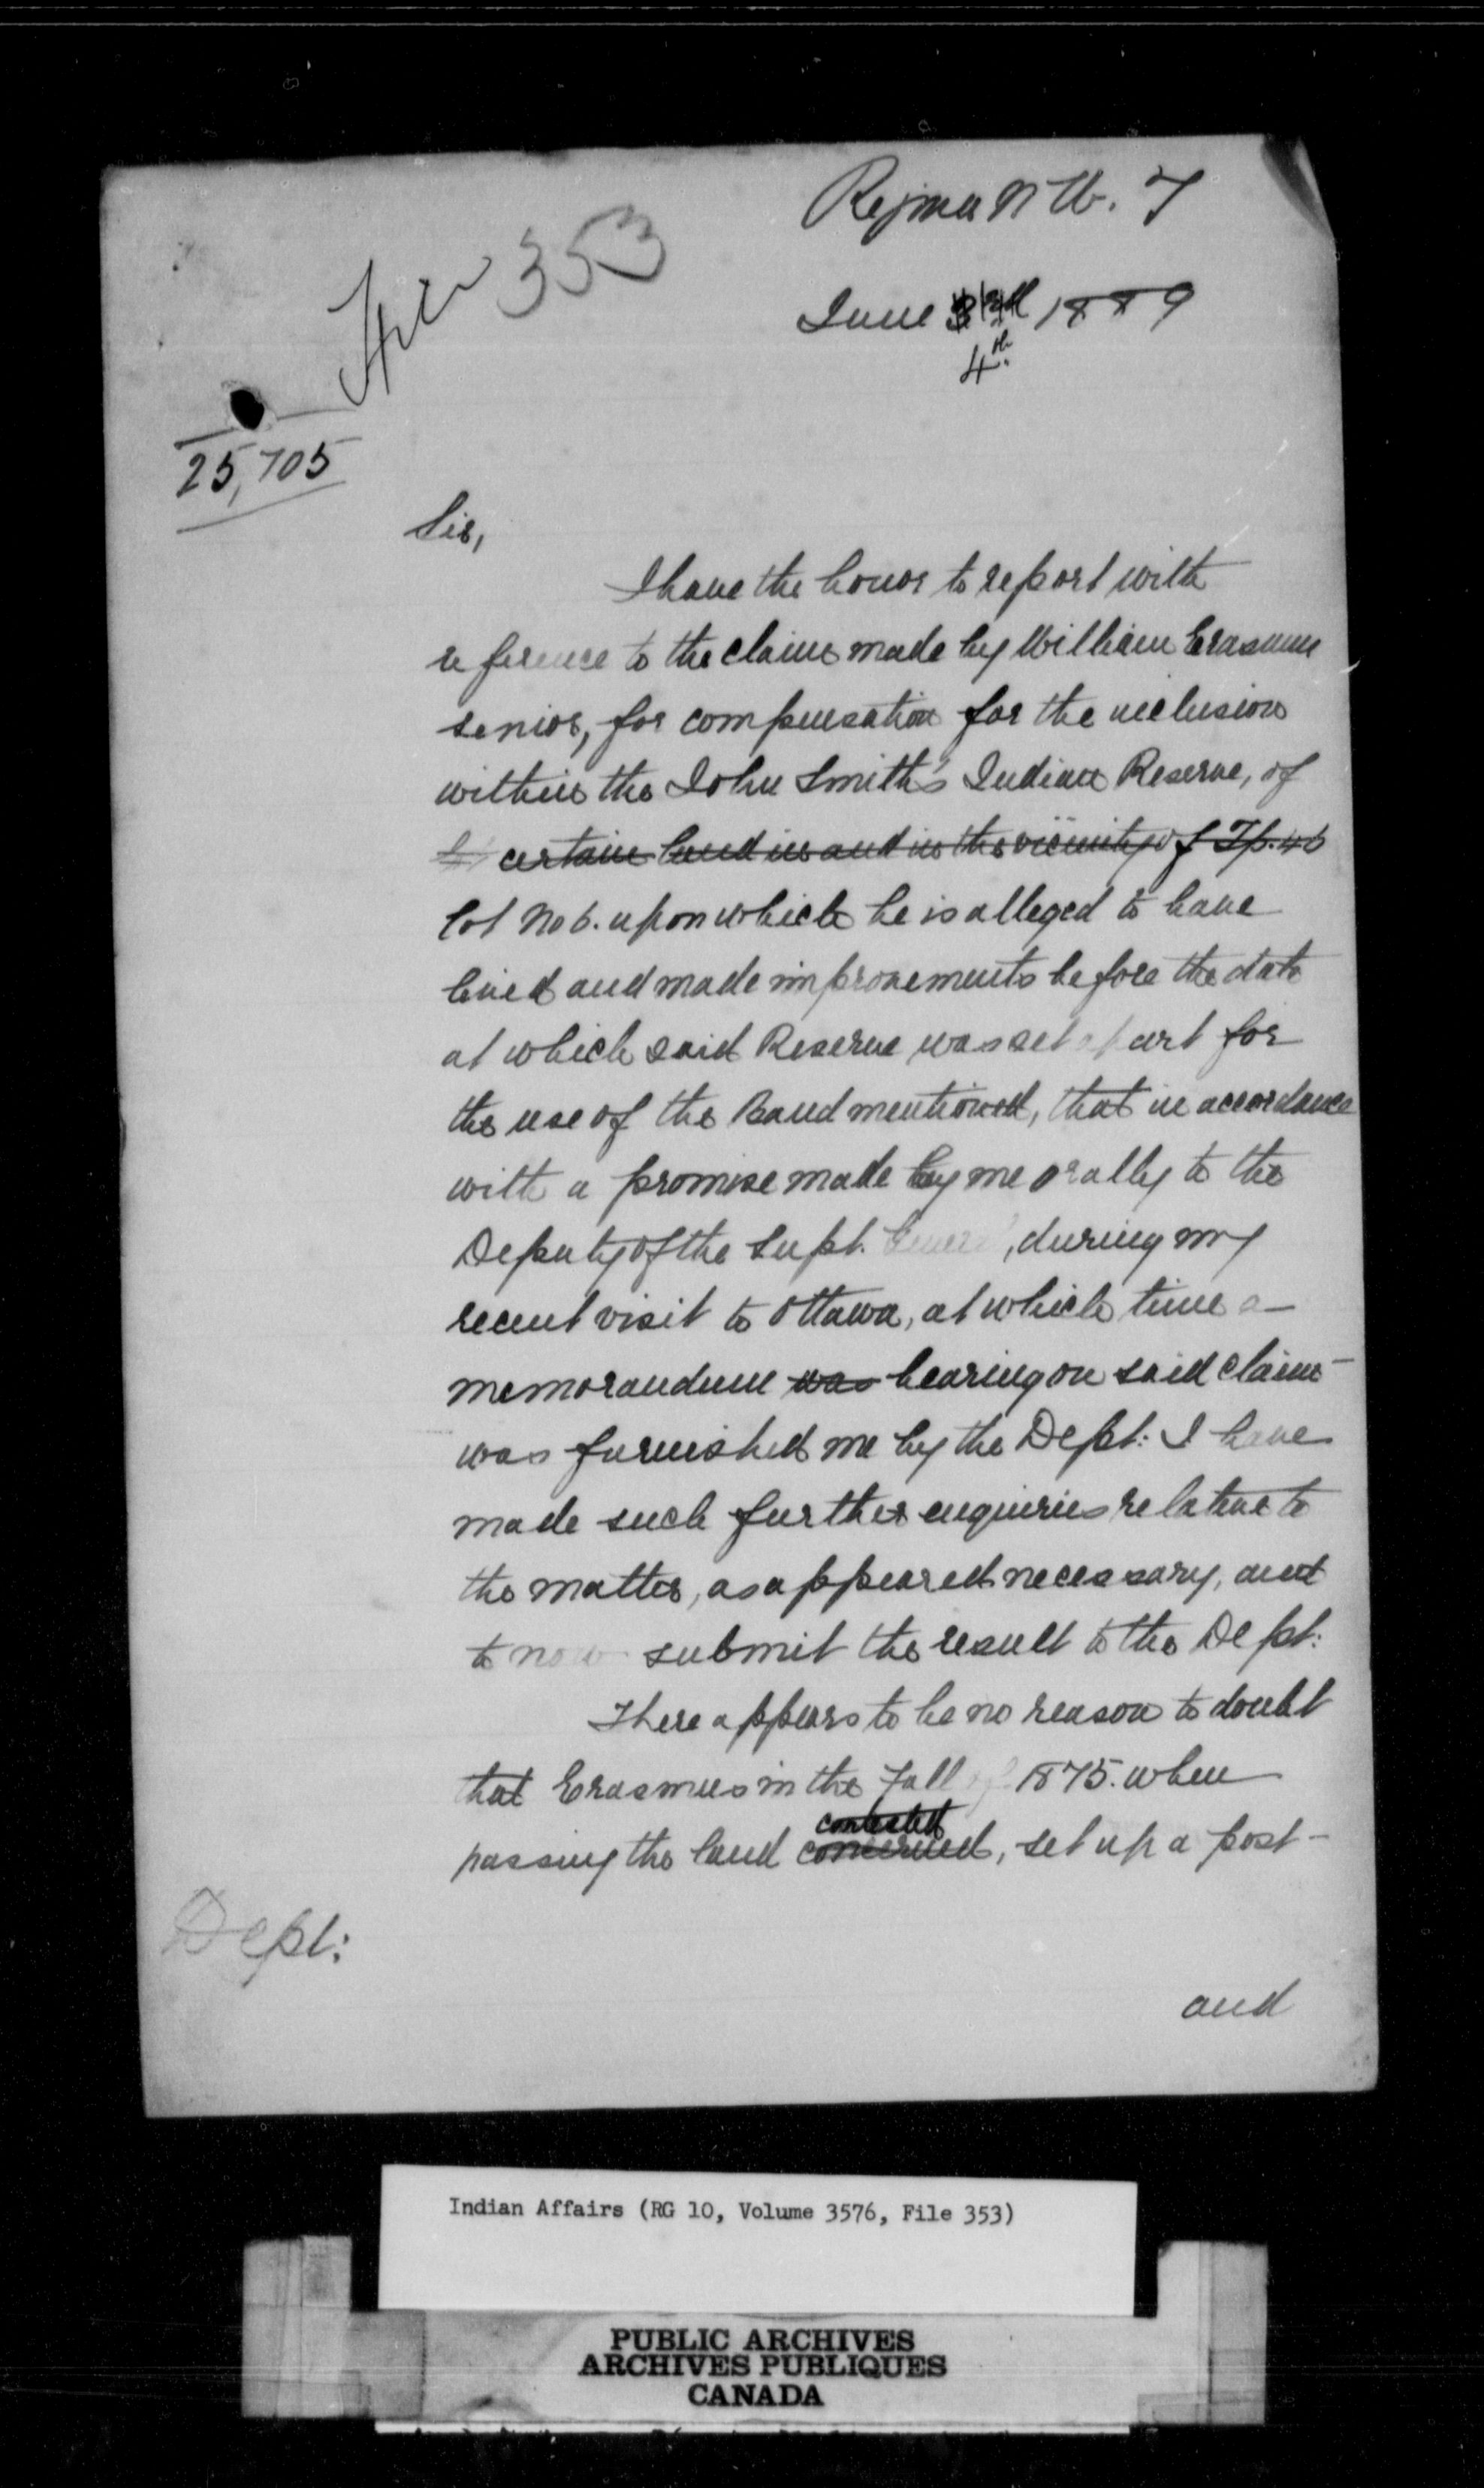 Regina N W. T
File 353
June 3rd 1889
4th
25,705
Sir,
I have the honor to report with
reference to the claim made by William Erasmus
senior, for compensation for the inclusion
within the John Smith's Indian Reserve, of
certain land in and in the vicinity of Tp. 46
lot No 6. upon which he is alleged to have
lived and made improvements before the date
at which said Reserve was set apart for
the use of the Band mentioned, that in accordance
with a promise made by me orally to the
Deputy of the Supt. General, during my
recent visit to Ottawa, at which time a
memorandum was bearing on said claim
was furnished me by the Dept: I have
made such further enquiries relative to
the matter, as appeared necessary, and
to now submit the result to the Dept:
There appears to be no reason to doubt
that Erasmus in the Fall of 1875. when
contested
passing the land concerned, set up a post-
Dept:
and
Indian Affairs (RG 10, Volume 3576, File 353)
PUBLIC ARCHIVES
ARCHIVES PUBLIQUES
CANADA